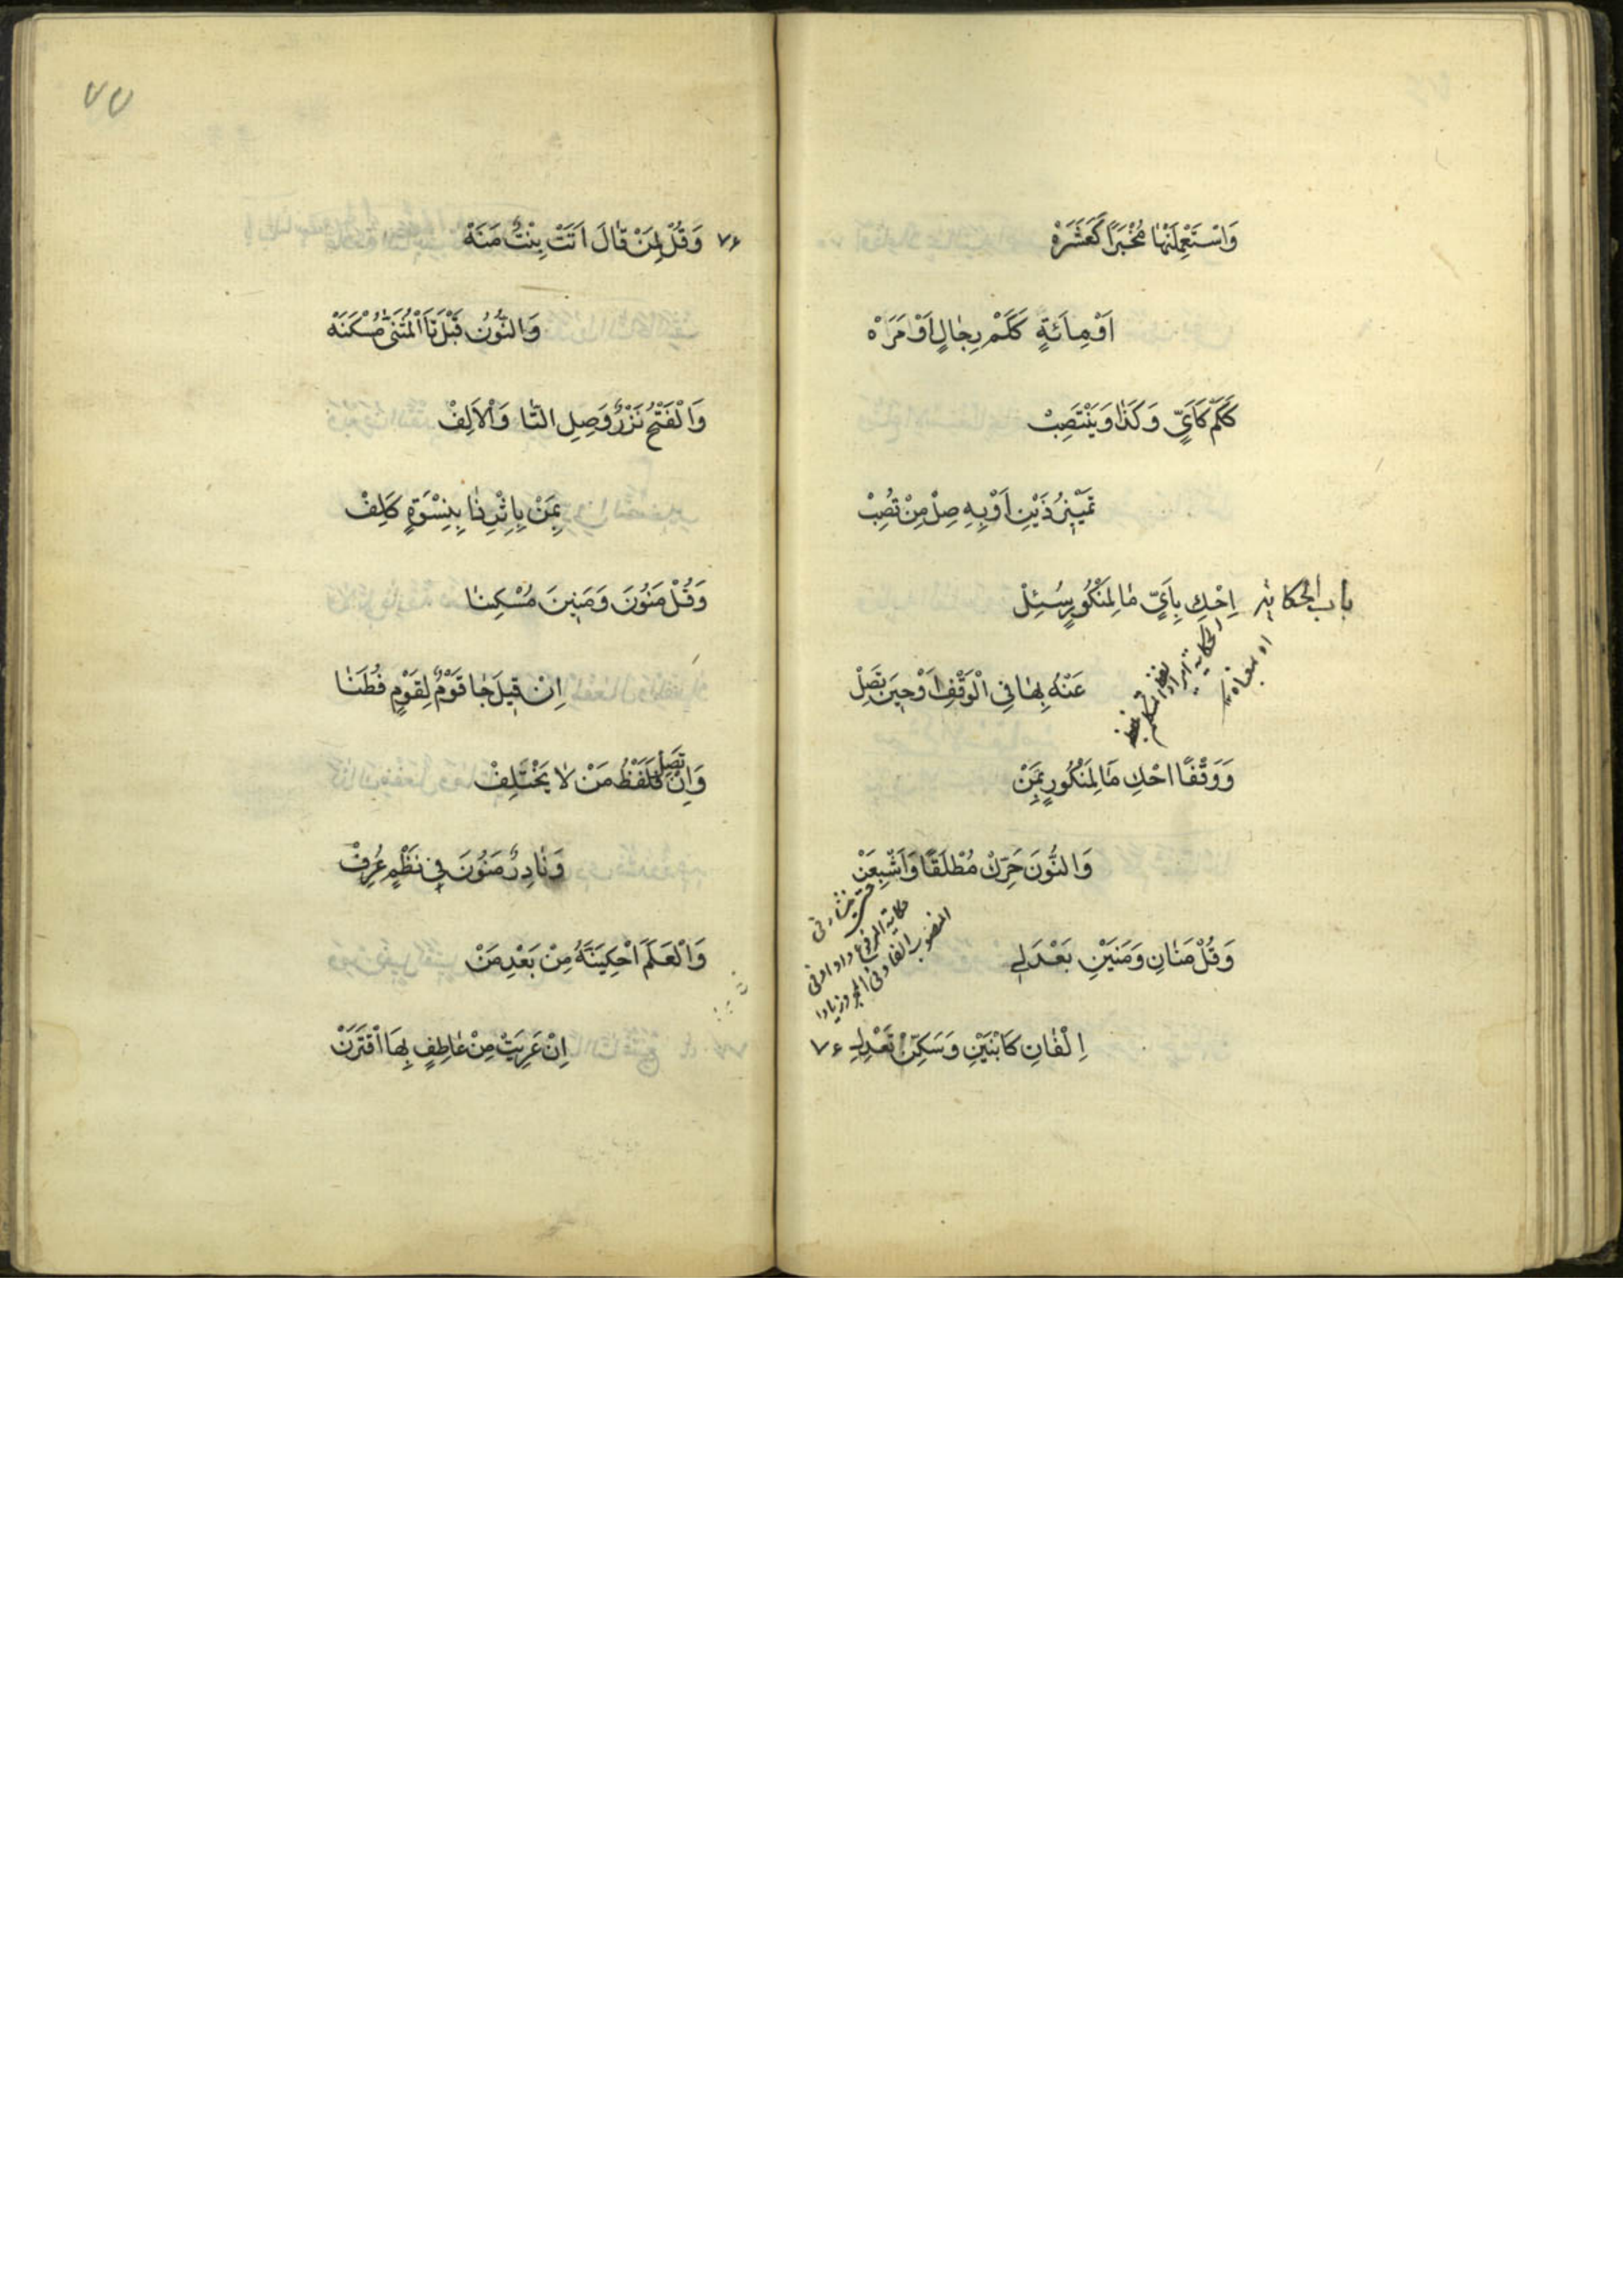 وَاسْتَعْمِلَنْهٰا مُخْبَرًا كَعَشَرَهْ
اَوْ مِائَةٍ كَكَمْ رِجٰالٍ اَوْ مَرَهْ
كَكَمْ كَاَيٍّ وَكَذٰا وَيَنْتَصِبْ
تَمْيٖيزُ ذَيْنِ اَوْ بِهِ صِلْ مِنْ تُصِبْ
باب الحكاية اِحْكِ بِاَيٍّ مٰا لِمَنْكُورٍ سُئِلْ
عَنْهُ بِهٰا فِي الْوَقْفِ اَوْ حٖينَ تَصِلْ
وَوَقْفًا احْكِ مٰا لِمَنْكُورٍ بِمَنْ
وَالنُّونَ حَرِّكْ مُطْلَقًا وَاَشْبِعَنْ
وَقُلْ مَنٰانِ وَمَنَيْنِ بَعْدَ لِي
اِلْفٰانِ كَابْنَيْنِ وَسَكِّنْ تَعْدِلِ ٧۶
٧٧
٧۶ وَقُلْ لِمَنْ قٰالَ اَتَتْ بِنْتٌ مَنَهْ
وَالنُّونُ قَبْلَ تَا الْمُثَنّٰى مُسْكَنَهْ
وَالْفَتْحُ نَزْرٌ وَصِلِ التّٰا وَالْاَلِفْ
بِمَنْ بِاِثْرِ ذٰا بِنِسْوَةٍ كَلِفْ
وَقُلْ مَنُونَ وَمَنٖينَ مُسْكِنٰا
اِنْ قٖيلَ جٰا قَوْمٌ لِقَوْمٍ فُطَنٰا
وَاِنْ تَصِلْ فَلَفْظُ مَنْ لٰا يَخْتَلِفْ
وَنٰادِرٌ مَنُونَ فٖي نَظْمٍ عُرِفْ
وَالْعَلَمَ احْكِيَنَّهُ مِنْ بَعْدِ مَنْ
اِنْ عَرِيَتْ مِنْ عٰاطِفٍ بِهَا اقْتَرَنْ